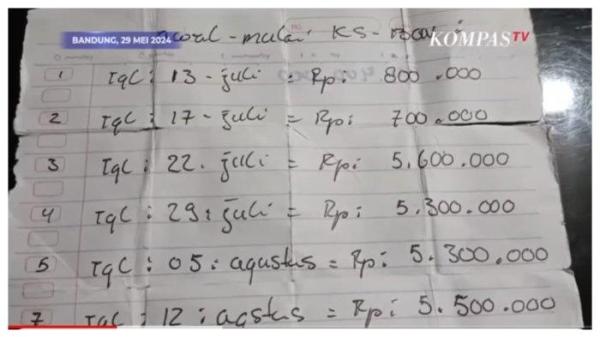 BANDUNG, 29 MEI 2024
KOMPASTV
awal - mulai KS-
1 TgL : 13 - juli = Rp: 800.000
2 TgL : 17 - juli = Rp: 700.000
3 TgL : 22 - juli = Rp: 5.600.000
4 TgL : 29 : juli = Rp: 5.300.000
5 TgL : 05 : agustus = Rp: 5.300.000
7 TgL : 12 : agstus = Rp: 5.500.000